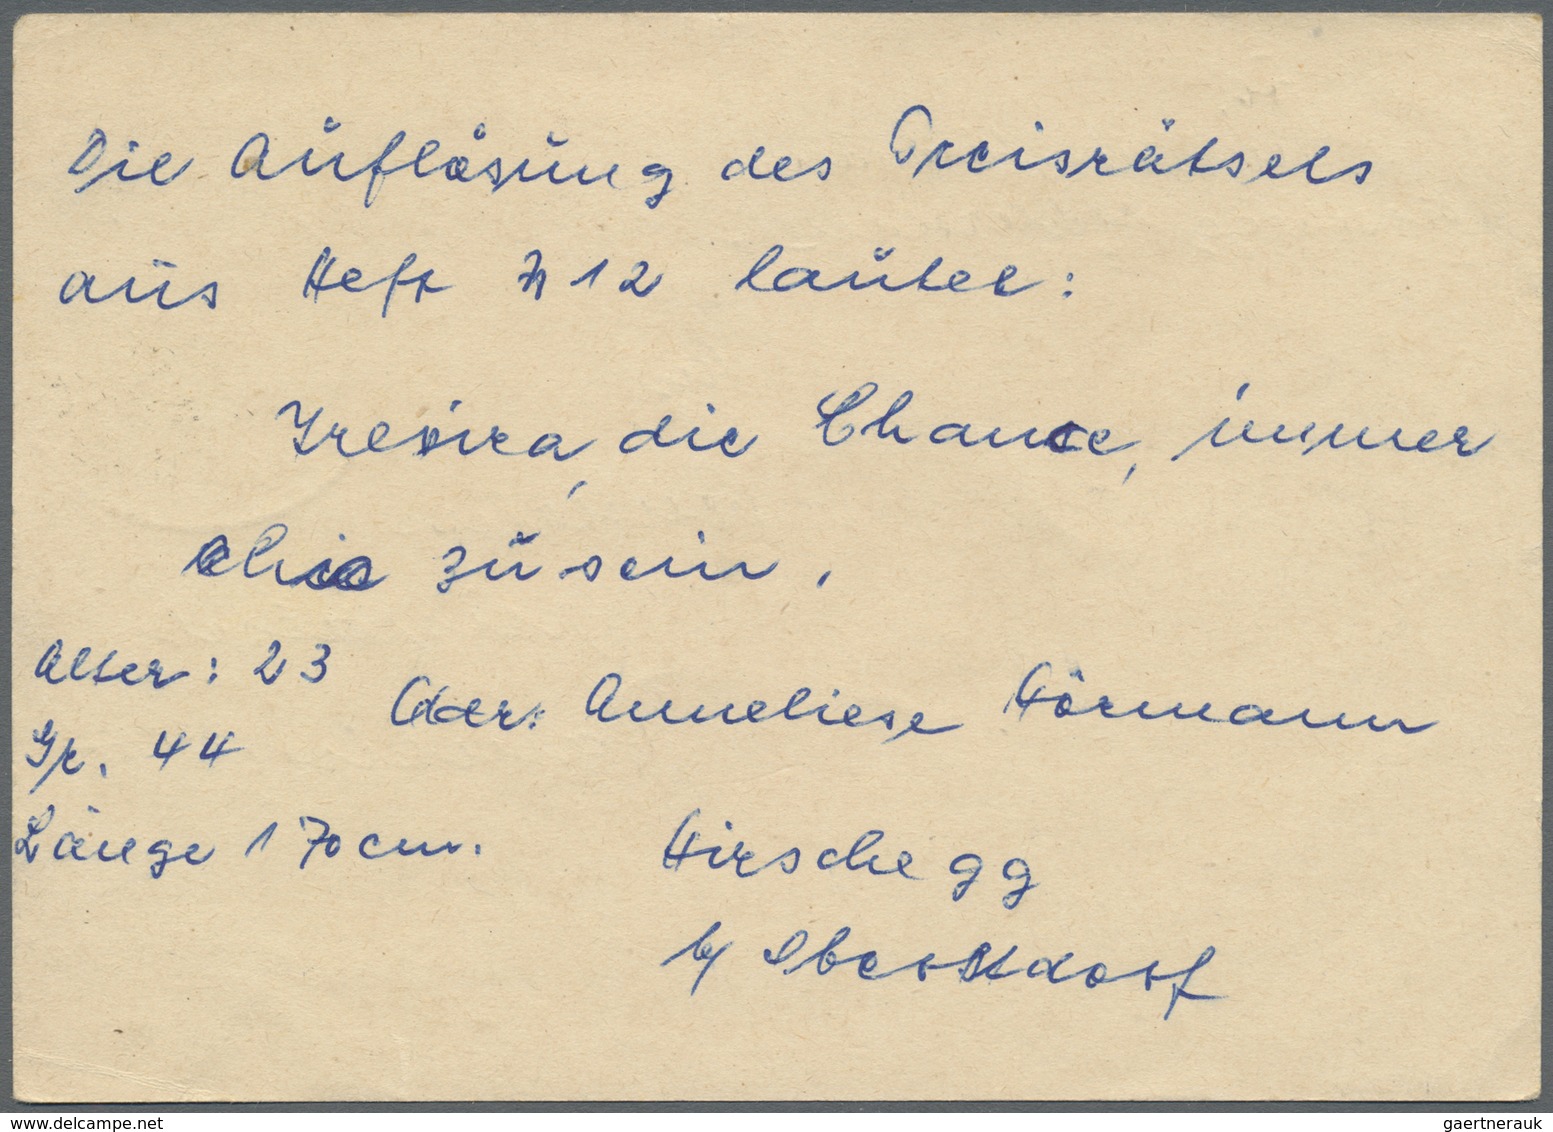 Die Auflösung des Preisrätsels
aus Heft N 12 lautet:
Trevira, die Chance, immer
chic zu sein.
Alter: 23
Gr. 44
Länge 170 cm.
Anneliese Hörmann
Hirschegg
b/ Oberstdorf
gaertnerauk